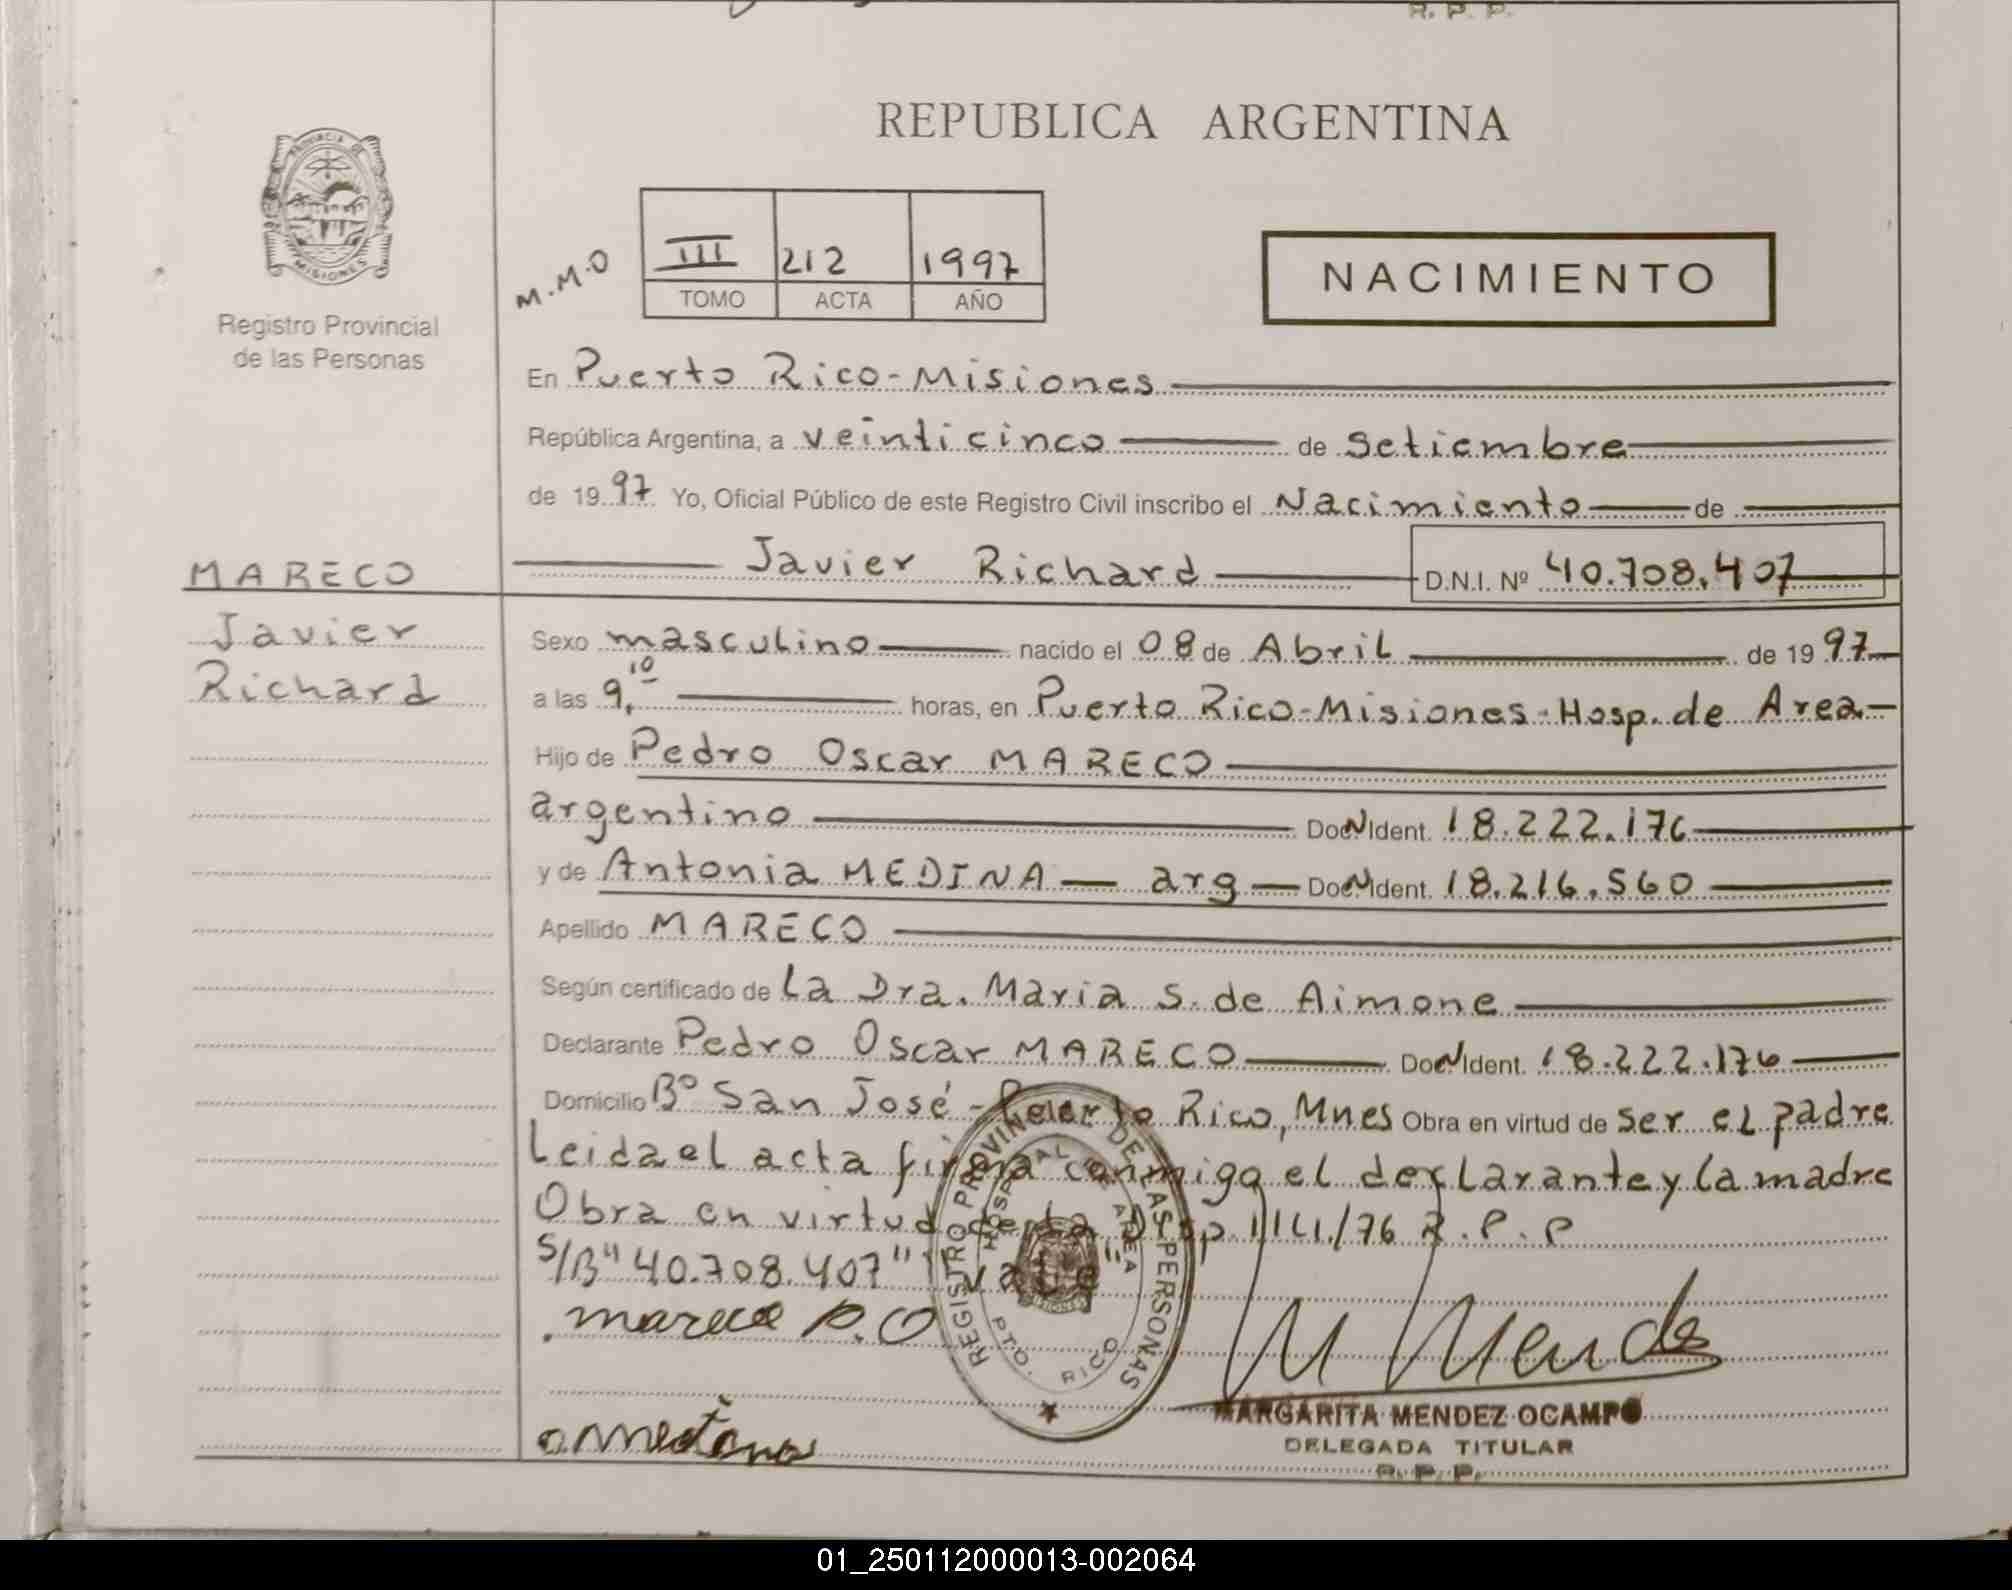 R. P. P.
REPUBLICA ARGENTINA
PROVINCIA DE
MISIONES
Registro Provincial
de las Personas
M.M.O
III 212 1997
TOMO ACTA AÑO
NACIMIENTO
En Puerto Rico-Misiones
República Argentina, a veinticinco de setiembre
de 19 97 Yo, Oficial Público de este Registro Civil inscribo el Nacimiento de
MARECO
Javier Richard D.N.I. Nº 40.708.407
Javier
Richard
Sexo masculino nacido el 08 de Abril de 19 97
a las 9,10 horas, en Puerto Rico-Misiones-Hosp. de Area
Hijo de Pedro Oscar MARECO
argentino Doc N Ident. 18.222.176
y de Antonia MEDINA arg Doc N Ident. 18.216.560
Apellido MARECO
Según certificado de La Dra. Maria S. de Aimone
Declarante Pedro Oscar MARECO Doc N Ident. 18.222.176
Domicilio Bº San José - Puerto Rico, Mnes Obra en virtud de ser el padre
Leida el acta firma conmigo el declarante y la madre
Obra en virtud de la Disp. 1141/76 R.P.P
S/B "40.708.407" "vale"
mareco P.O
REGISTRO PROVINCIAL DE LAS PERSONAS
HOSPITAL DE AREA
PTO. RICO
M Mendez
MARGARITA MENDEZ OCAMPO
DELEGADA TITULAR
R. P. P.
01_250112000013-002064